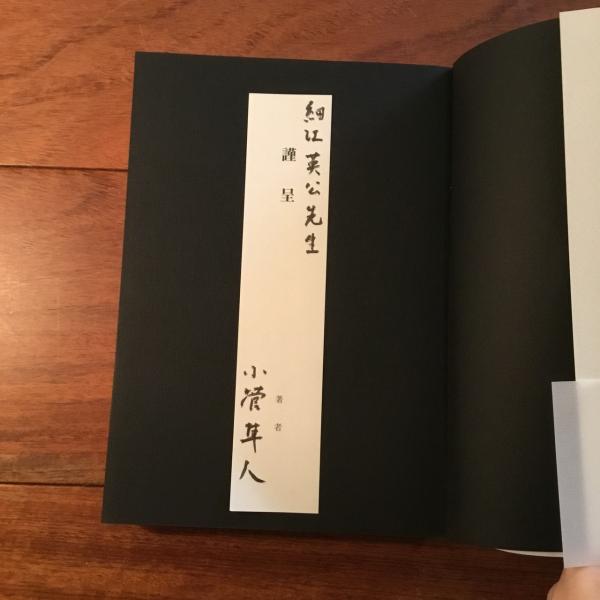 細江英公先生
謹呈
著者
小菅隼人